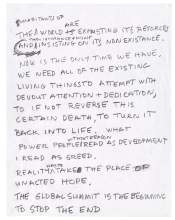 INHABITANTS OF
ARE
THE WORLD EXHAUSTING ITS RESOURCES
AND INSISTING ON ITS NON EXISTENCE.
NOW IS THE ONLY TIME WE HAVE.
WE NEED ALL OF THE EXISTING
LIVING THINGS TO ATTEMPT WITH
DEVOUT ATTENTION + DEDICATION,
TO IF NOT REVERSE THIS
CERTAIN DEATH, TO TURN IT
BACK INTO LIFE. WHAT
POWER PEOPLE READ AS DEVELOPMENT
I READ AS GREED.
REALITY TAKES THE PLACE OF
UNACTED HOPE.
THE GLOBAL SUMMIT IS THE BEGINNING
TO STOP THE END